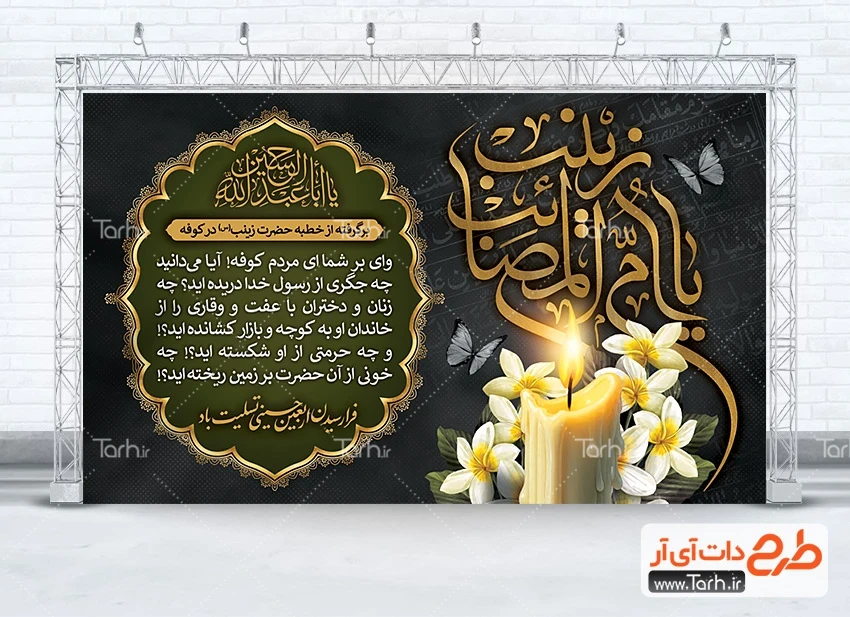 یا أباعبدالله الحسین
برگرفته از خطبه حضرت زینب(س) در کوفه
وای بر شما ای مردم کوفه! آیا می‌دانید
چه جگری از رسول خدا دریده اید؟ چه
زنان و دختران با عفت و وقاری را از
خاندان او به کوچه و بازار کشانده اید؟!
و چه حرمتی از او شکسته اید؟! چه
خونی از آن حضرت بر زمین ریخته اید؟!
فرارسیدن اربعین حسینی تسلیت باد
یا أمّ المصائب زینب
Tarh.ir
Tarh.ir
Tarh.ir
Tarh.ir
Tarh.ir
Tarh.ir
Tarh.ir
Tarh.ir
طرح دات آی آر
www.Tarh.ir